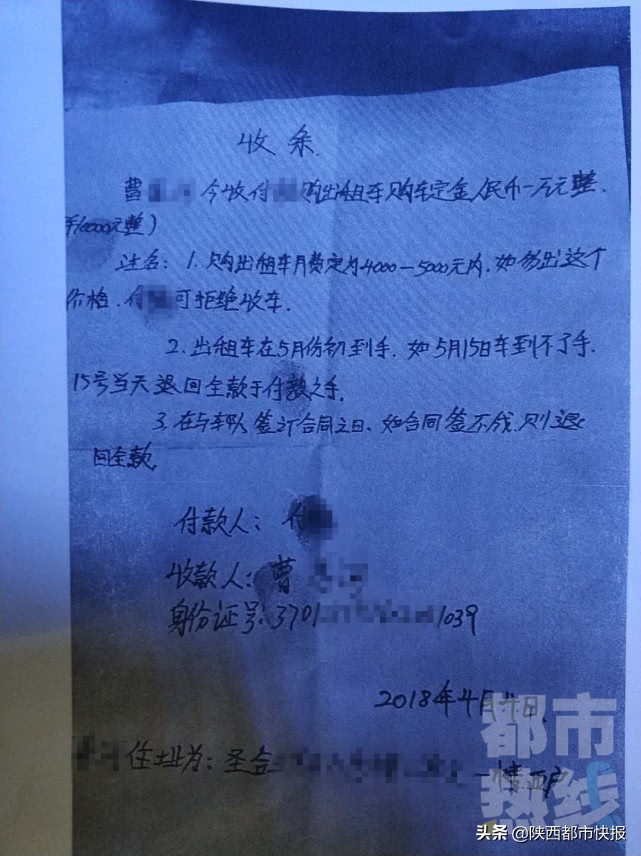 收条
曹 今收付 购出租车购车定金人民币一万元整、
(10000元整)
注名：1.购出租车月费定为4000—5000元内.如勿出这个
价格.付 可拒绝收车.
2.出租车在5月份初到手.如5月15日车到不了手.
15号当天退回全款于付款之手.
3.在与车队签订合同之日、如合同签不成.则退
回全款.
付款人：付
收款人：曹
身份证号:3701 1039
2018年4月 日.
住址为：圣合 一幢 户
都市
热线
头条 @陕西都市快报